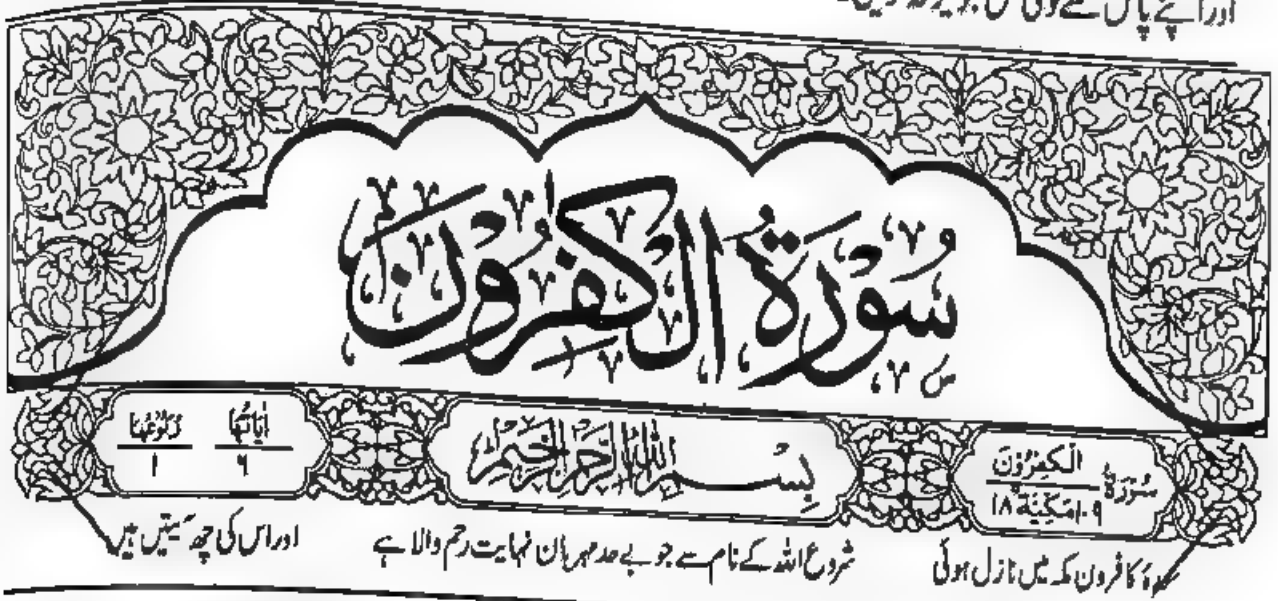 اور اپنے پاس سے کوئی
سُوْرَةُ الْكٰفِرُوْنَ
سُوْرَةُ الْكٰفِرُوْنَ ١٠٩ مَكِّيَّةٌ ١٨ بِسْمِ اللّٰهِ الرَّحْمٰنِ الرَّحِيْمِ اٰيَاتُهَا ٦ رُكُوْعُهَا ١
سورۂ کافرون مکہ میں نازل ہوئی شروع اللہ کے نام سے جو بے حد مہربان نہایت رحم والا ہے اور اس کی چھ آیتیں ہیں